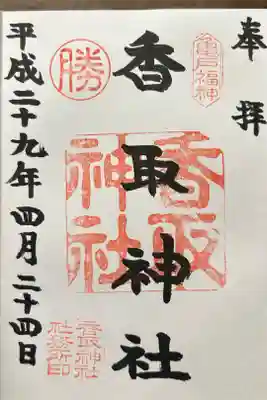 奉拝
亀戸福神
香取神社
香取神社
勝
平成二十九年四月二十四日
香取神社社務所印